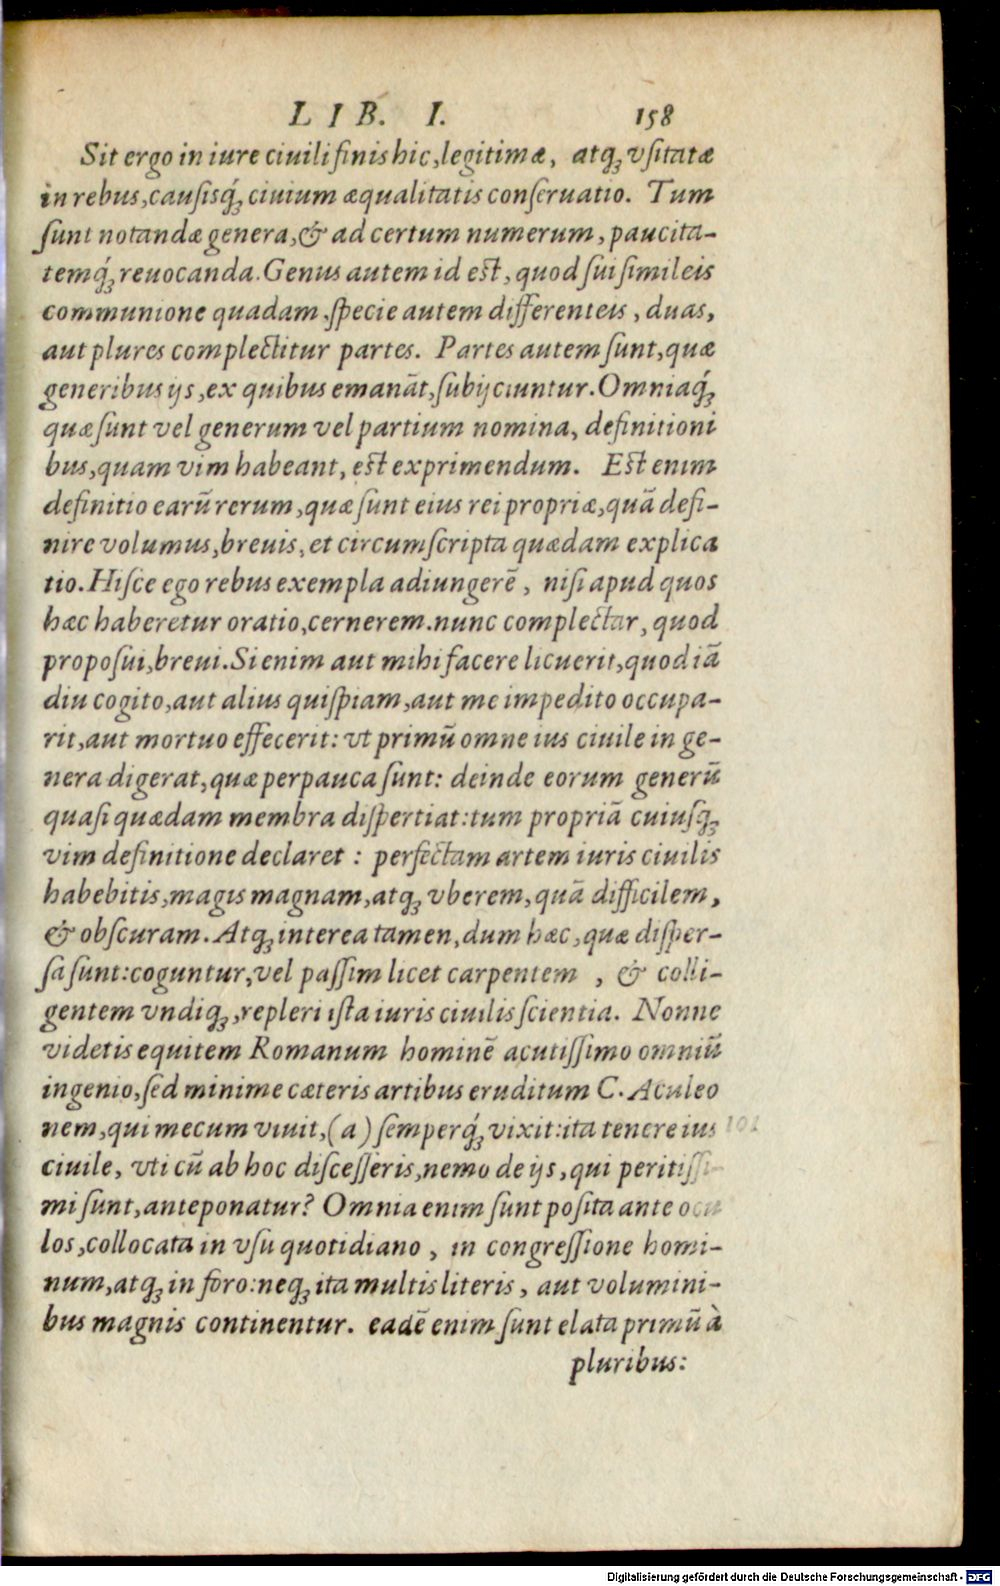 LIB. I. 158
Sit ergo in iure ciuili finis hic, legitimæ, atq; vsitatæ
in rebus, causisq́; ciuium æqualitatis conseruatio. Tum
sunt notandæ genera, & ad certum numerum, paucita-
temq́; reuocanda. Genus autem id est, quod sui simileis
communione quadam, specie autem differenteis, duas,
aut plures complectitur partes. Partes autem sunt, quæ
generibus ijs, ex quibus emanãt, subijciuntur. Omniaq́;
quæ sunt vel generum vel partium nomina, definitioni
bus, quam vim habeant, est exprimendum. Est enim
definitio earũ rerum, quæ sunt eius rei propriæ, quã defi-
nire volumus, breuis, et circumscripta quædam explica
tio. Hisce ego rebus exempla adiungerẽ, nisi apud quos
hæc haberetur oratio, cernerem. nunc complectar, quod
proposui, breui. Si enim aut mihi facere licuerit, quod iã
diu cogito, aut alius quispiam, aut me impedito occupa-
rit, aut mortuo effecerit: vt primũ omne ius ciuile in ge-
nera digerat, quæ perpauca sunt: deinde eorum generũ
quasi quædam membra dispertiat: tum propriã cuiusq;
vim definitione declaret : perfectam artem iuris ciuilis
habebitis, magis magnam, atq; vberem, quã difficilem,
& obscuram. Atq; interea tamen, dum hæc, quæ disper-
sa sunt: coguntur, vel passim licet carpentem , & colli-
gentem vndiq;, repleri ista iuris ciuilis scientia. Nonne
videtis equitem Romanum hominẽ acutissimo omniũ
ingenio, sed minime cæteris artibus eruditum C. Aculeo
nem, qui mecum viuit, (a) semperq́; vixit: ita tenere ius 101
ciuile, vti cũ ab hoc discesseris, nemo de ijs, qui peritissi-
mi sunt, anteponatur? Omnia enim sunt posita ante ocu
los, collocata in vsu quotidiano, in congressione homi-
num, atq; in foro: neq; ita multis literis, aut volumini-
bus magnis continentur. eadẽ enim sunt elata primũ à
pluribus:
Digitalisierung gefördert durch die Deutsche Forschungsgemeinschaft - DFG